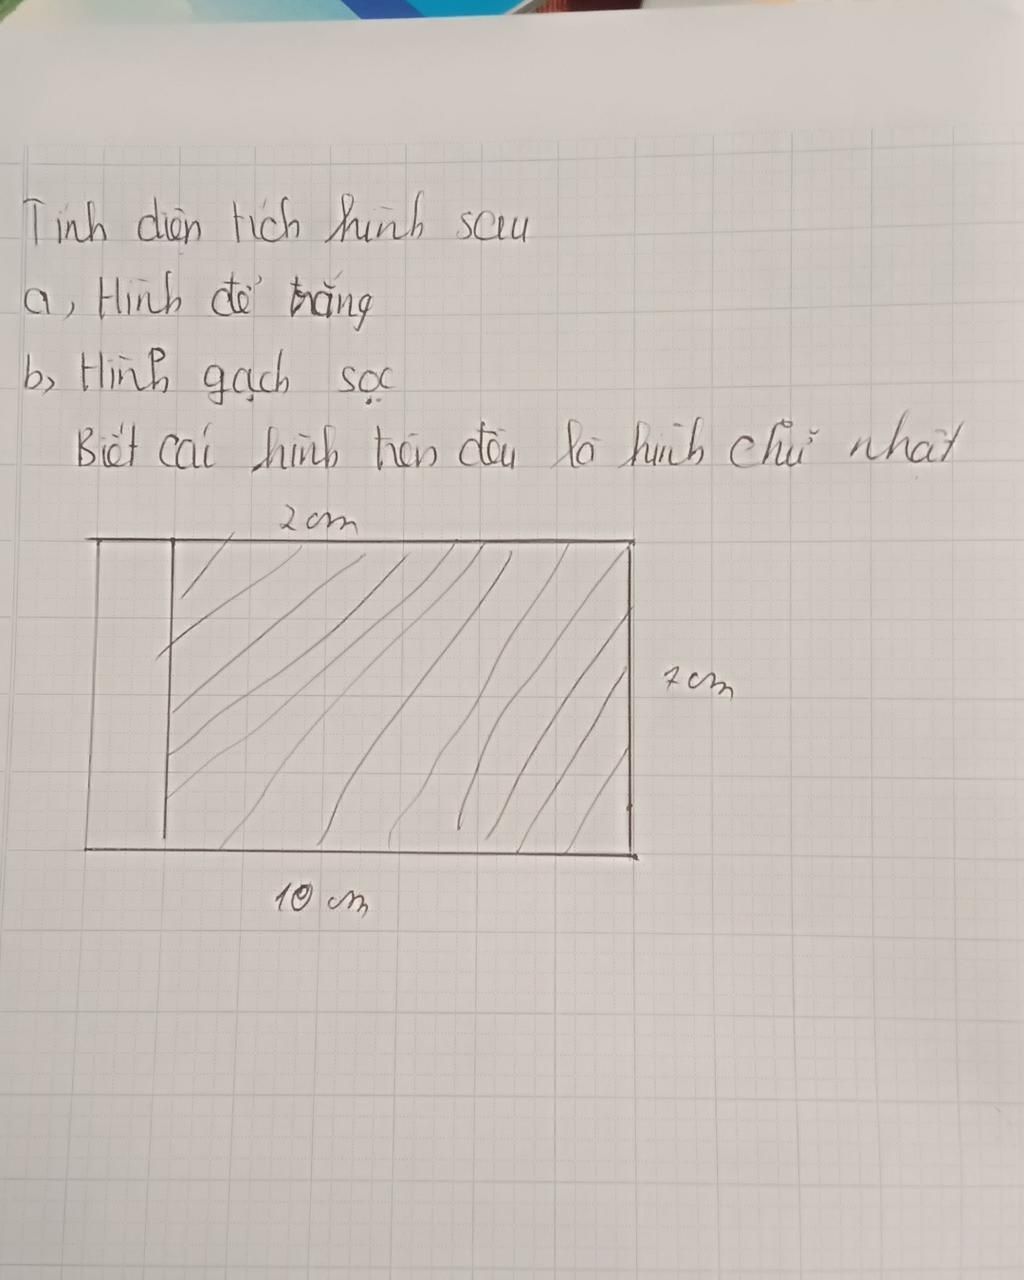 Tính diện tích hình sau
a, Hình để trắng
b, Hình gạch sọc
Biết các hình trên đều là hình chữ nhật
2 cm
7 cm
10 cm